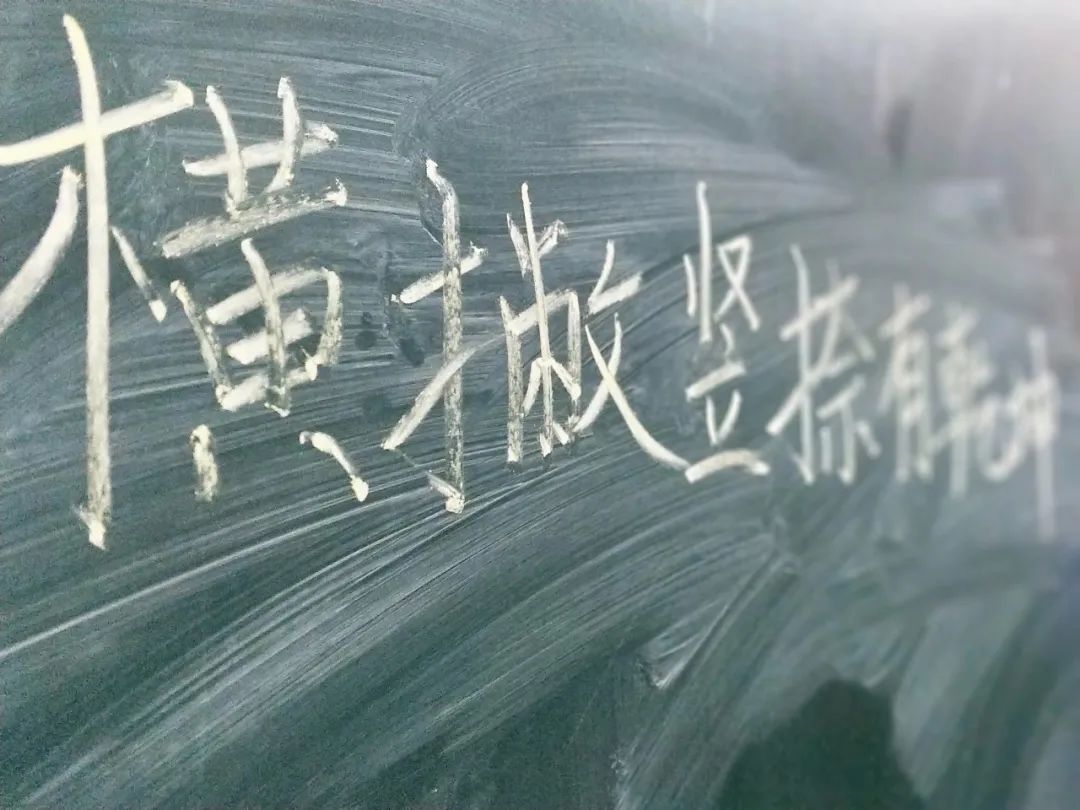 横撇竖捺有乾坤